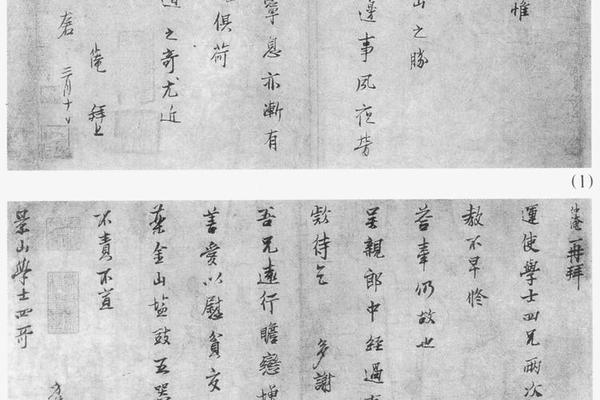 惟
山之勝
邊事夙夜勞
寧息亦漸有
俱荷
之奇尤近
淹 拜上
三月十
(1)
仲淹再拜
運使學士四兄兩次
教不早修
答牽仍故也
吳親郎中經過
款待乞 多謝
吾兄遠行瞻戀增
善愛以慰貧交
茶金山鹽豉五器
不責不宣
景山學士四哥